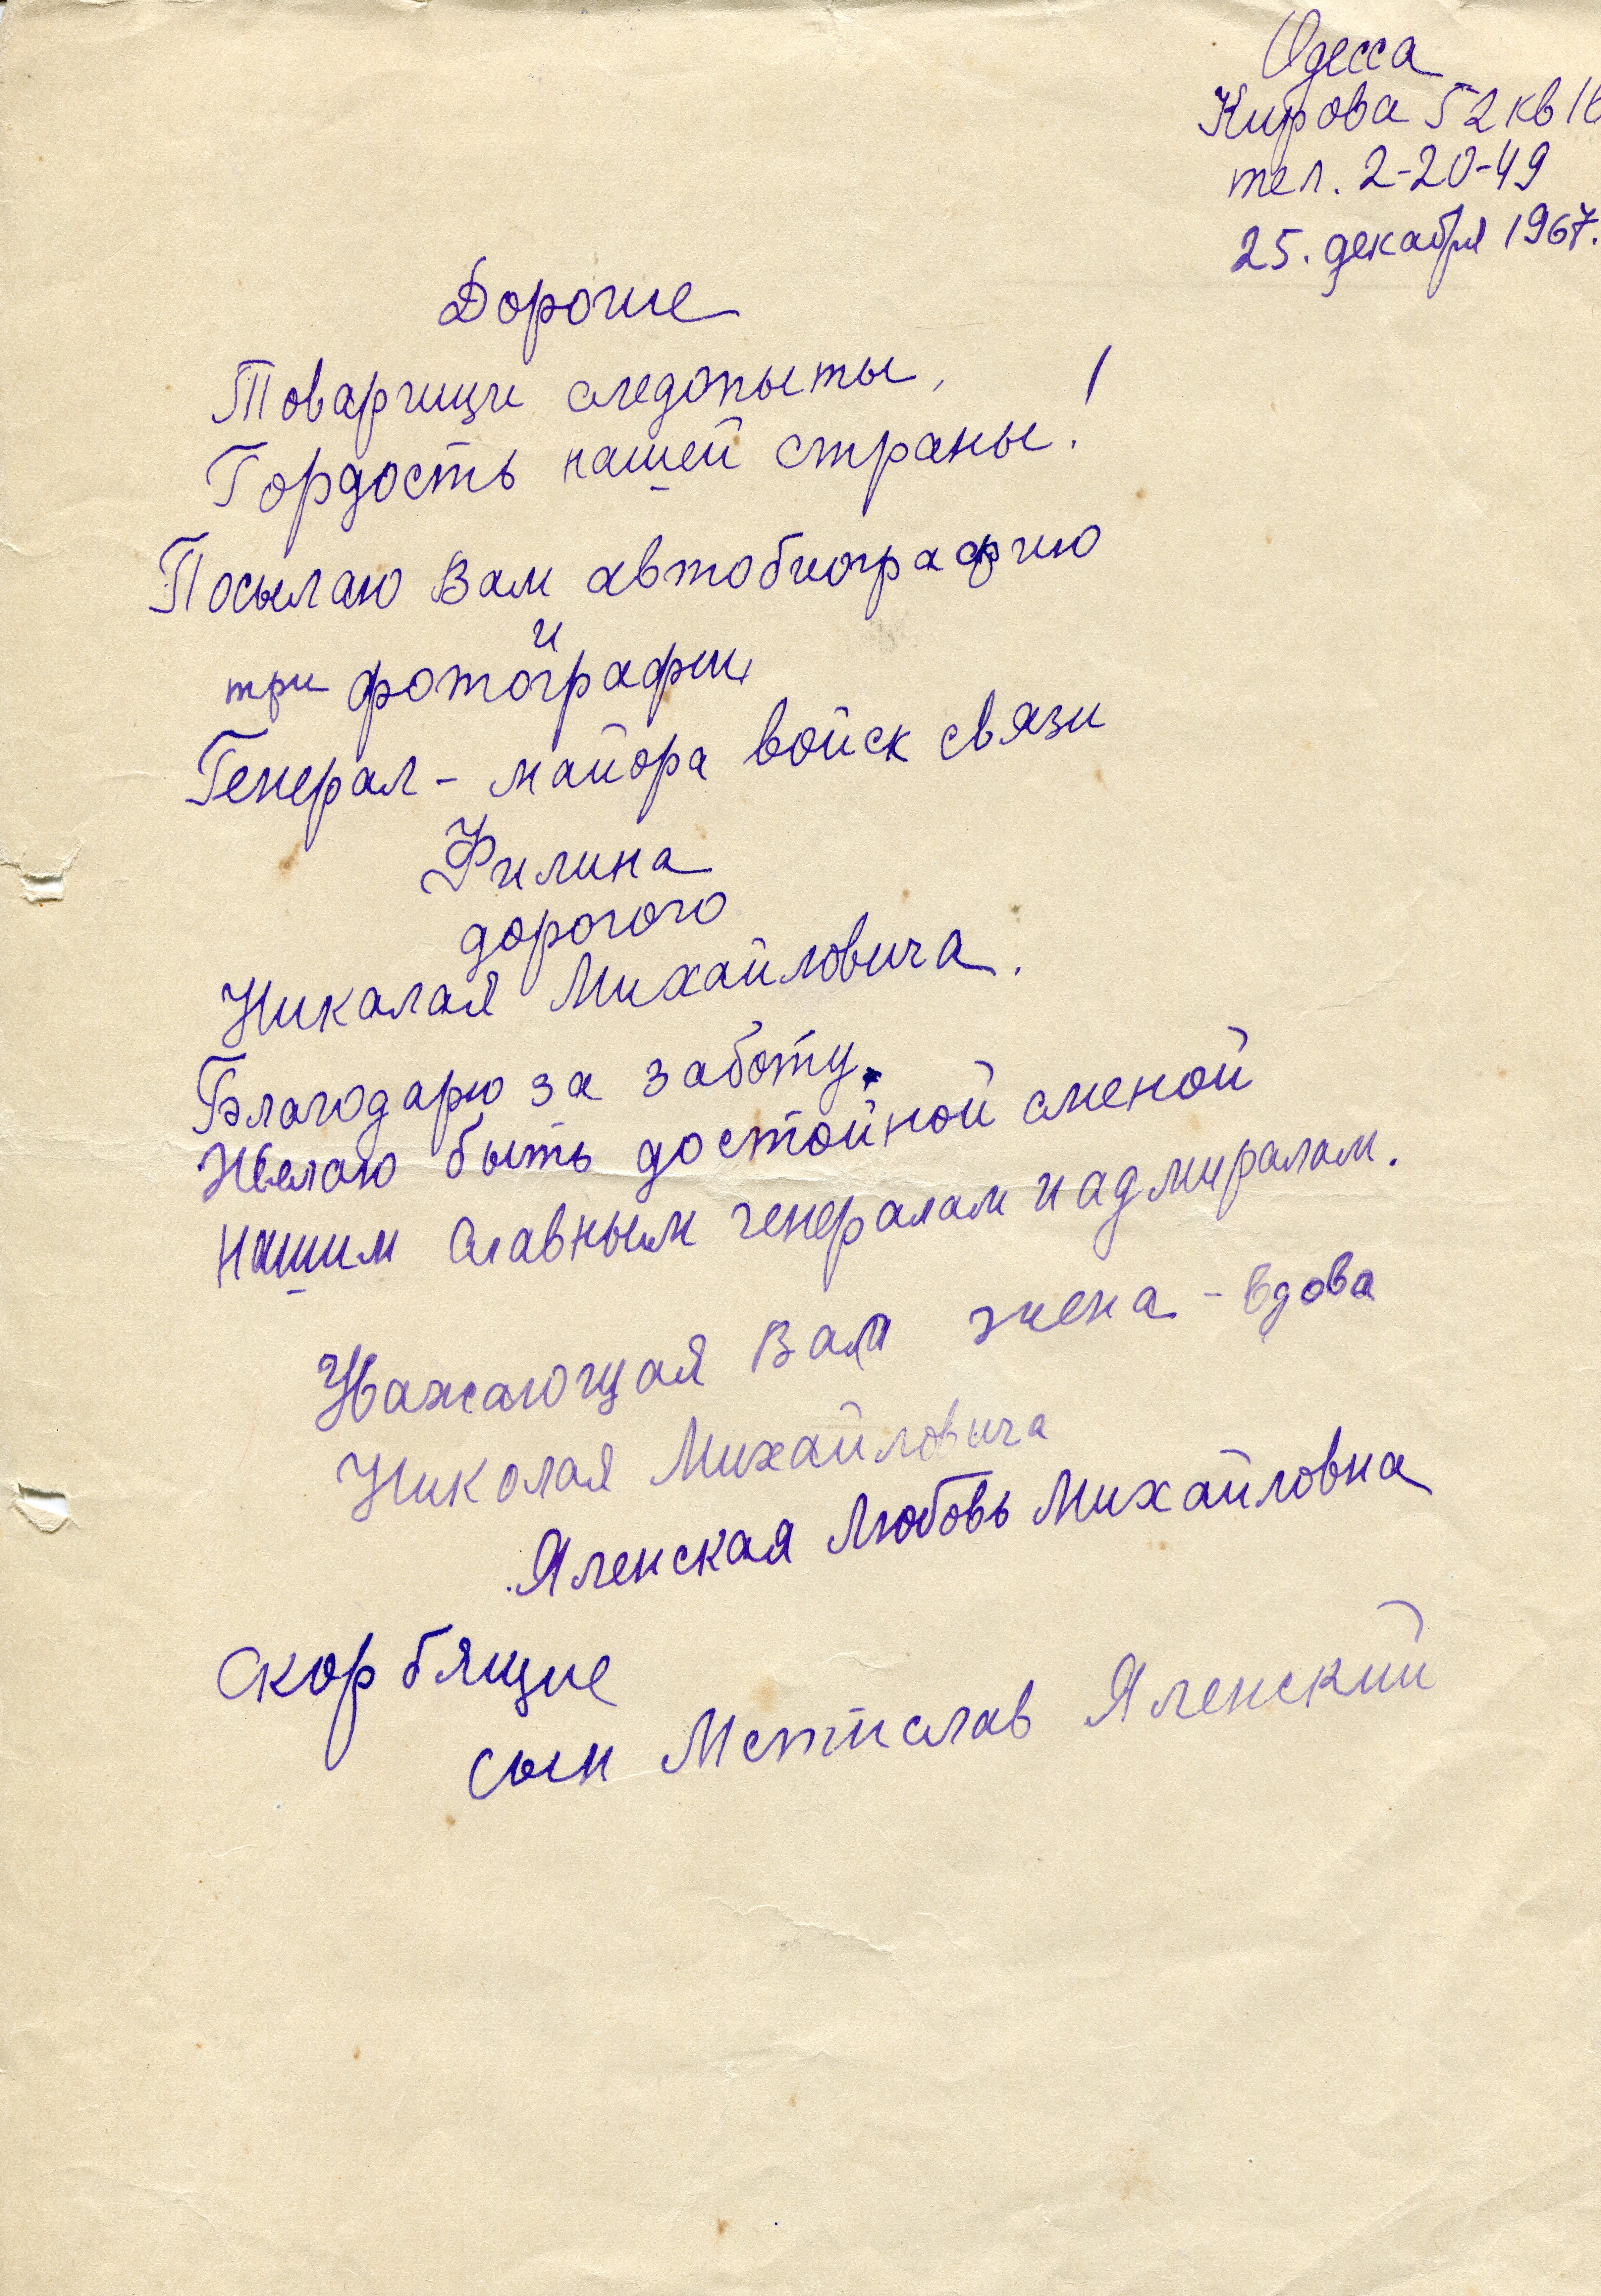 Одесса
Кирова 52 кв
тел. 2-20-49
25. декабря 1967.
Дорогие
Товарищи следопыты,
Гордость нашей страны!
Посылаю Вам автобиографию
и
три фотографии
Генерал-майора войск связи
Филина
дорогого
Николая Михайловича.
Благодарю за заботу.
Желаю быть достойной сменой
нашим славным генералам и адмиралам.
Уважающая Вам жена-вдова
Николая Михайловича
Яленская Любовь Михайловна
Скорбящие
сын Мстислав Яленский